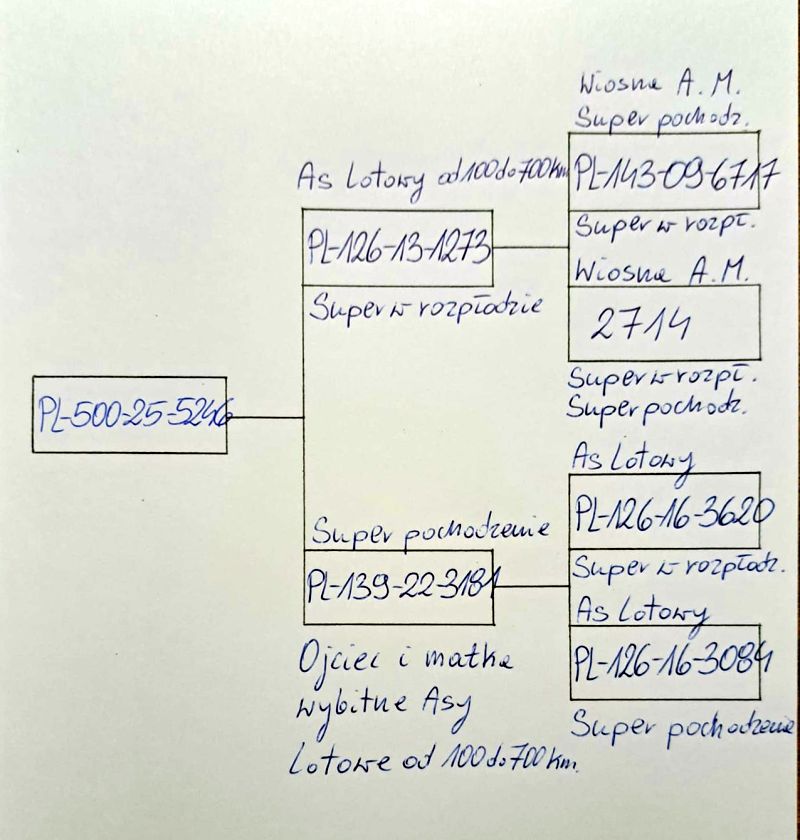 Wiosna A. M.
Super pochodz.
PL-143-09-6717
Super w rozpł.
As Lotowy od 100 do 700 km
PL-126-13-1273
Super w rozpłodzie
Wiosna A. M.
2714
Super w rozpł.
Super pochodz.
PL-500-25-5246
As Lotowy
PL-126-16-3620
Super w rozpłodz.
Super pochodzenie
PL-139-22-3181
Ojciec i matka
wybitne Asy
Lotowe od 100 do 700 km.
As Lotowy
PL-126-16-3084
Super pochodzenie